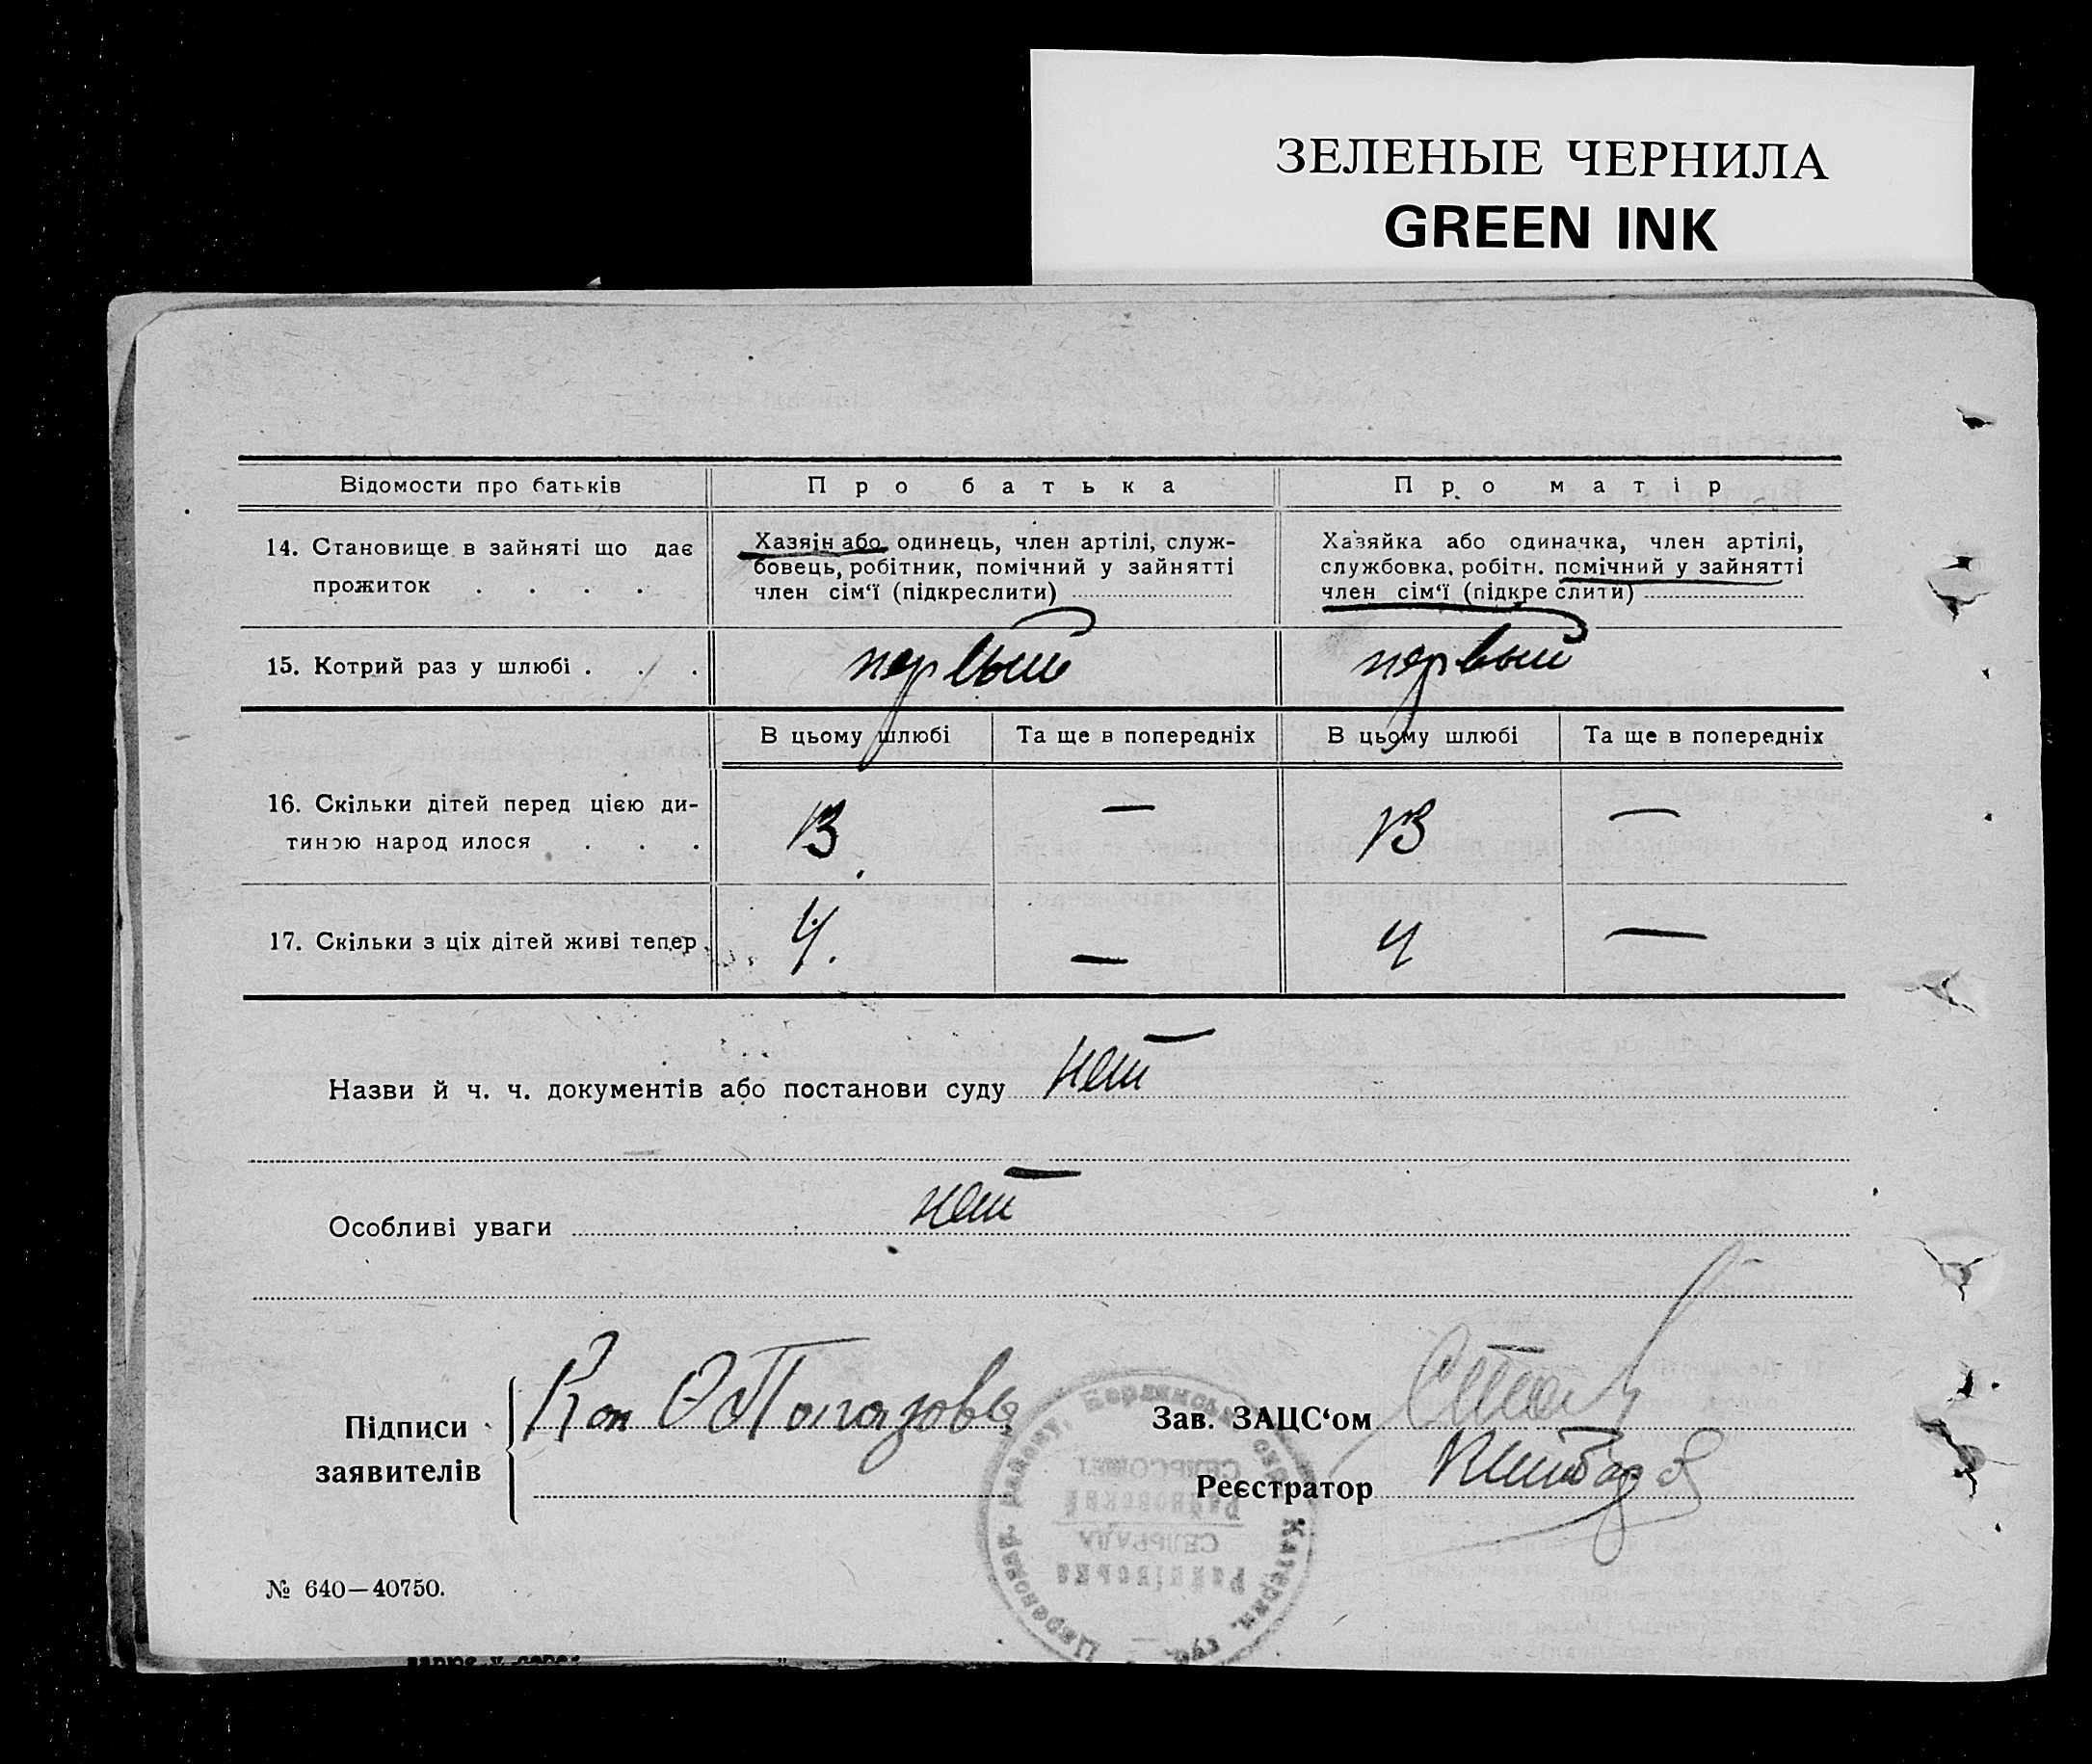 ЗЕЛЕНЫЕ ЧЕРНИЛА
GREEN INK
Відомости про батьків
Про батька
Про матір
14. Становище в зайняті що дає
прожиток . . . .
Хазяїн або одинець, член артілі, служ-
бовець, робітник, помічний у зайнятті
член сім‘ї (підкреслити)
Хазяйка або одиначка, член артілі,
службовка, робітн. помічний у зайнятті
член сім‘ї (підкреслити)
15. Котрий раз у шлюбі . . .
первый
первый
В цьому шлюбі
Та ще в попередніх
В цьому шлюбі
Та ще в попередніх
16. Скільки дітей перед цією ди-
тиною народилося . . .
13
—
13
—
17. Скільки з ціх дітей живі тепер
4.
—
4
—
Назви й ч. ч. документів або постанови суду нет
Особливі уваги нет
Підписи
заявителів
Зав. ЗАЦС‘ом
Реєстратор
СЕЛЬСОВЕТ
Райновский
СЕЛЬРАДА
Райнівська
№ 640—40750.